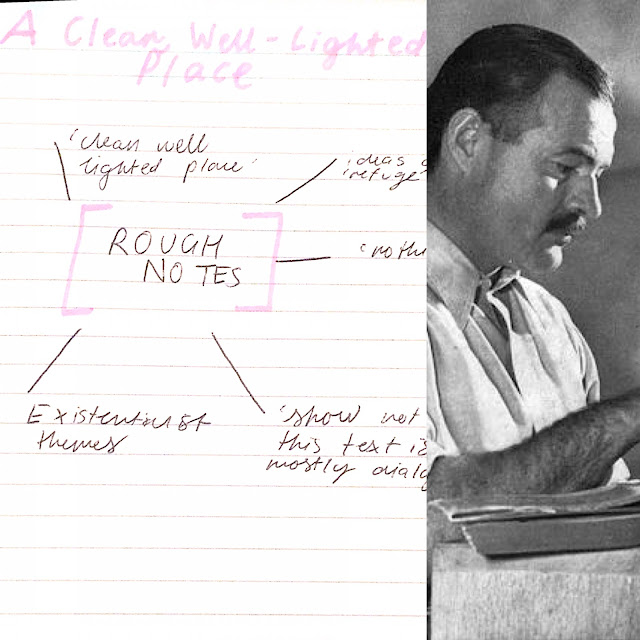 A Clean, Well-Lighted
Place
'clean well
lighted place'
ideas
'refuge'
ROUGH
NOTES
'nothi
Existentialist
themes
'show not
this text is
mostly dialo